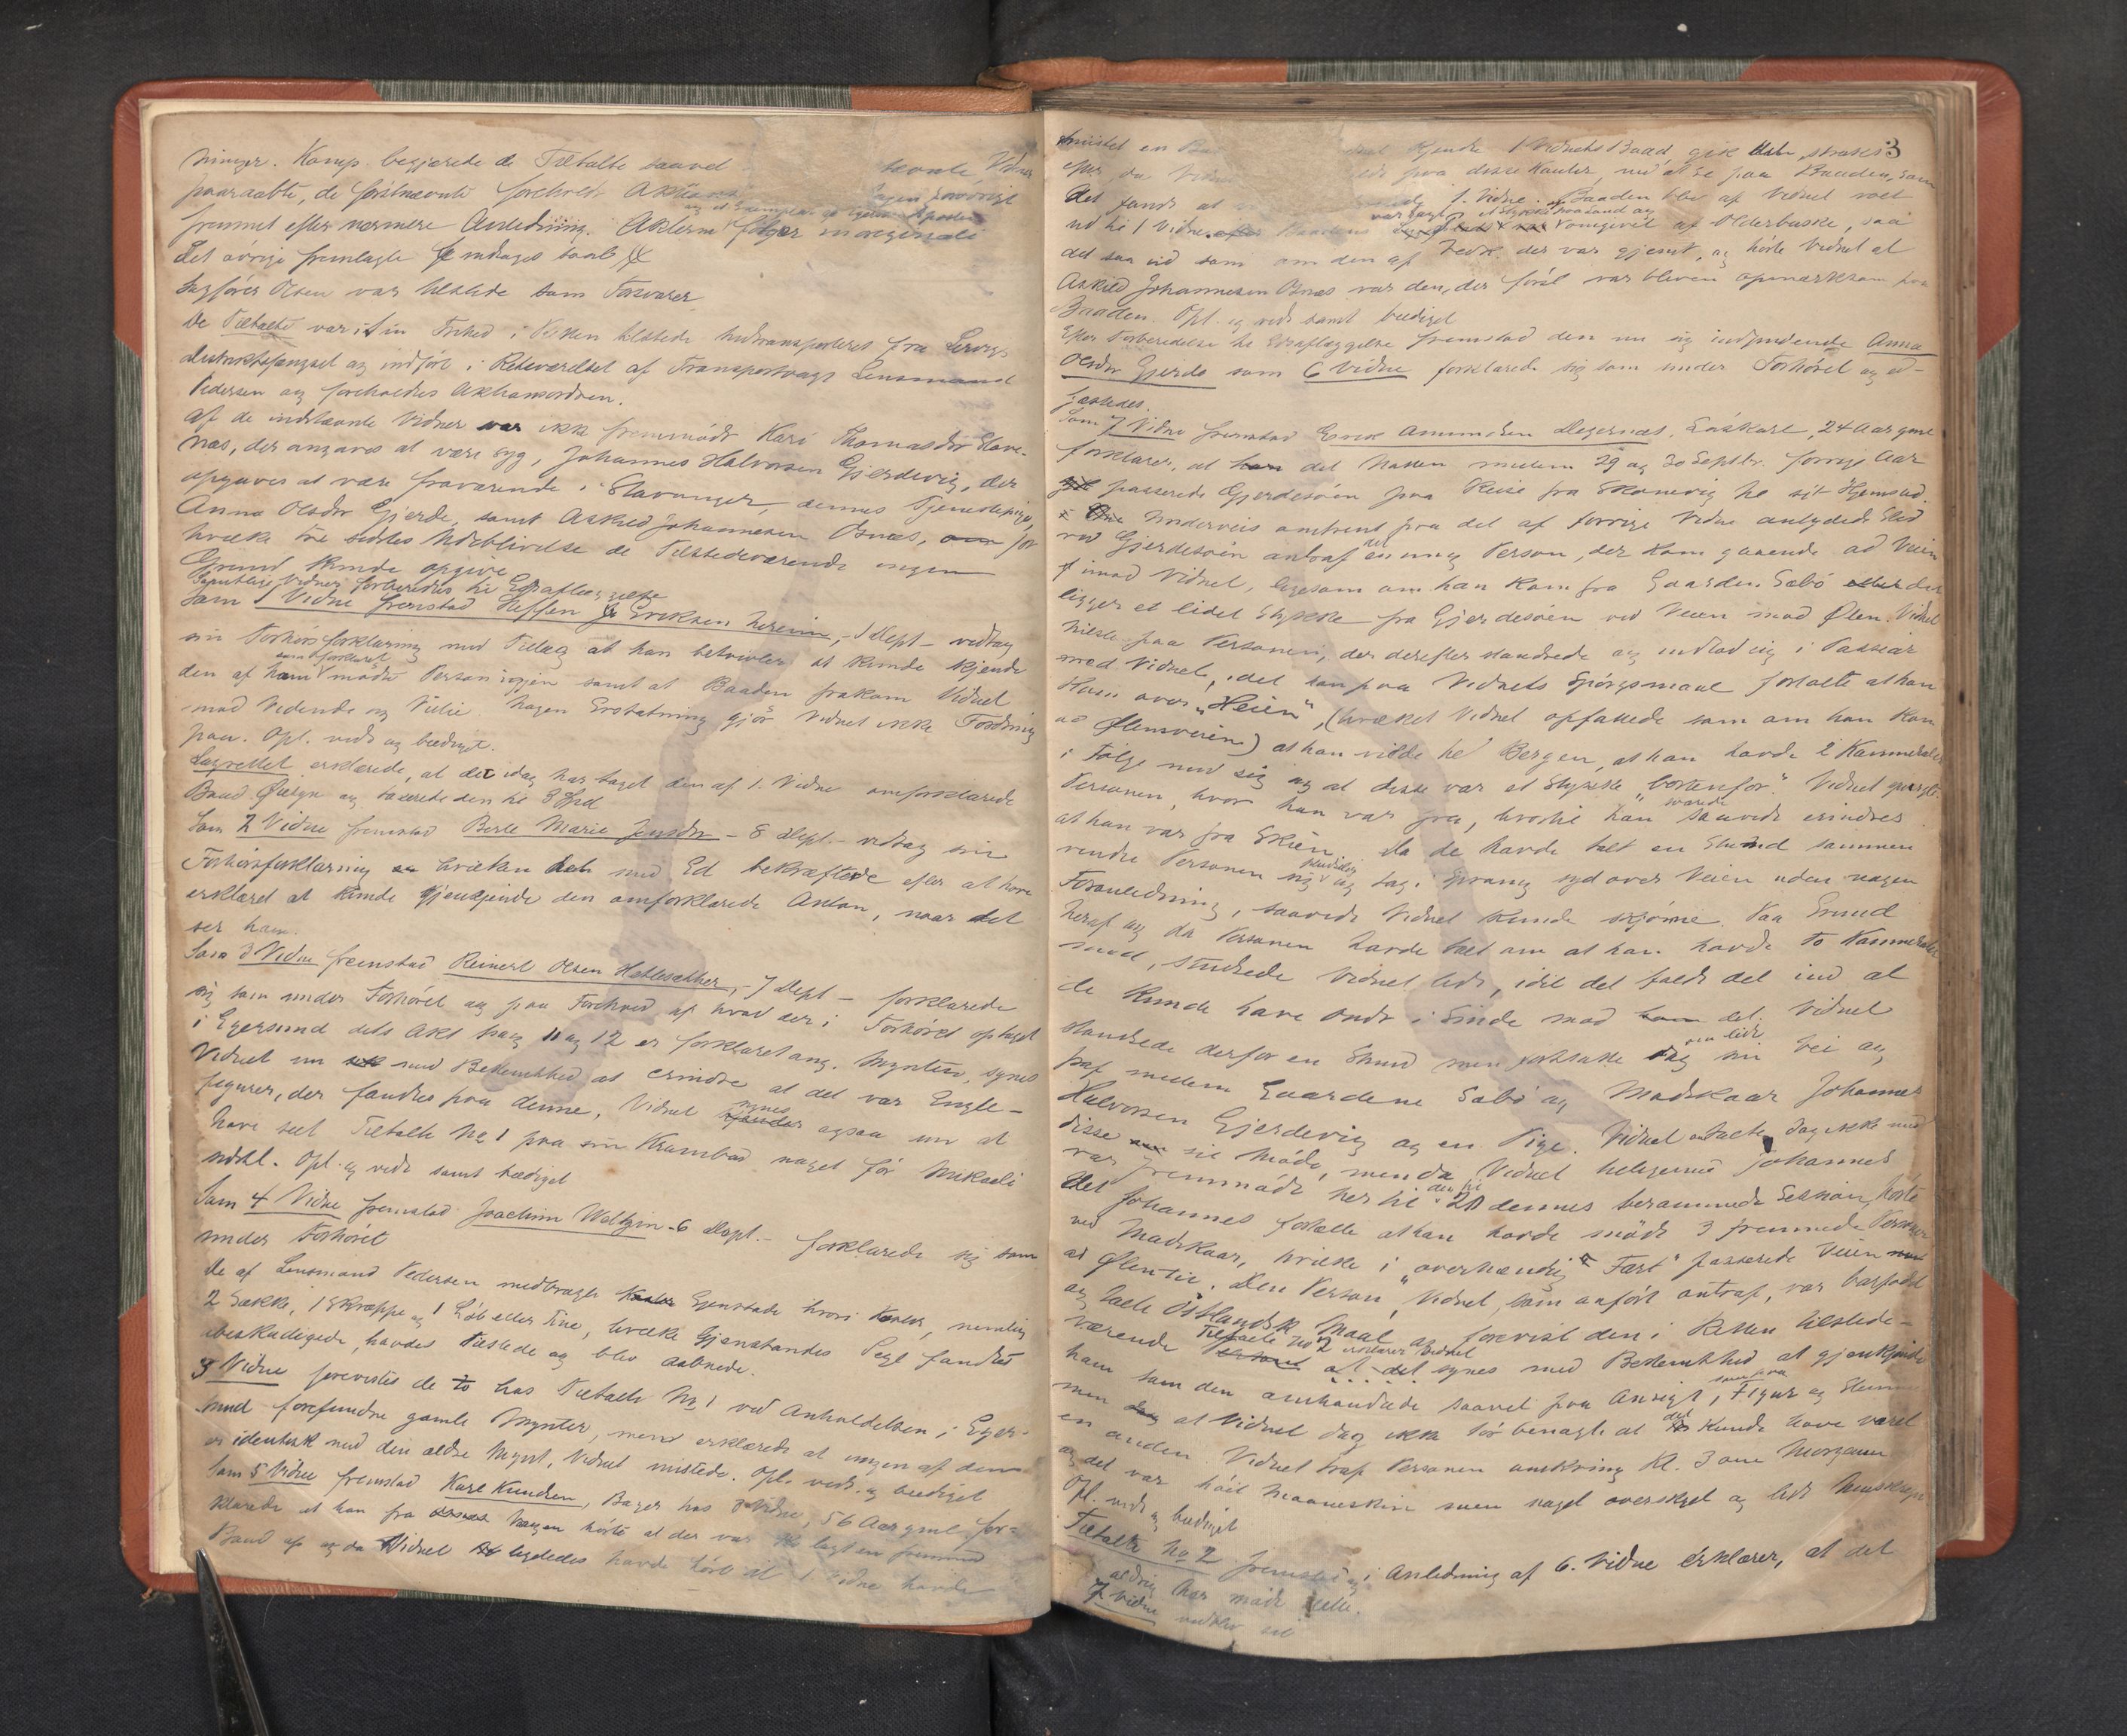 ninger. Komp. begjærede de Tiltalte saavel som Vidner
paaraabte, de førstnævnte foreholdt
fremmet efter nærmere Anledning. Akterne følger
Det øvrige fremlagte inddrages
Sagfører Olsen var tilstede som Forsvarer.
De Tiltalte var i sin Frihed i Retten tilstede hidtransporteret fra
Distriktsfængsel og indført i Retsværelset af Transportvagt Lensmand
Pedersen og foreholdtes Akthusordren.
Af de indstævnte Vidner var ikke fremmødt Kari Thomasdtr
næs, der angaves at være syg, Johannes Halvorsen Gjerdevig, der
opgaves at være fraværende i Stavanger, dennes Tjenestepige,
Anna Olsdtr Gjerde, samt Askild Johannesen Osnæs, for
hvilke to sidstes Udeblivelse de Tilstedeværende ingen
Grund kunde opgive.
Samtlige Vidner forberedtes til Edsaflæggelse
Som 1 Vidne fremstod Steffen Eriksen - 1 Dept - vedtog
sin Forhørsforklaring med Tillæg at han betvivler at kunde kjende
den af ham omforklaret mødte Person igjen samt at Baaden frakom Vidnet
mod Vidende og Vilje. Nogen Erstatning gjør Vidnet ikke Fordring
paa. Opl. vedt. og beediget.
Lagrettet erklærede, at det idag har taget den af 1. Vidne omforklarede
Baad Øiesyn og taxerede den til 8 Spd
Som 2 Vidne fremstod Berte Marie Jensdtr - 8 Dept. - vedtog sin
Forhørsforklaring hvilken hun med Ed bekræftede efter at have
erklæret at kunde gjenkjende den omforklarede Anton, naar det
ser ham.
Som 3 Vidne fremstod Reinert Olsen - 7 Dept - forklarede
sig som under Forhøret og paa Forehold af hvad der i Forhøret optaget
i Egersund dets Akt pag 11 og 12 er forklaret ang. Mynten, synes
Vidnet nu med Bestemthed at erindre at det var Engle-
figurer, der fandtes paa denne. Vidnet synes ogsaa nu at
have seet Tiltalte No 1 paa sin Krambod noget før Mikaeli
sidstl. Opl. og vedt. samt beediget
Som 4 Vidne fremstod Joachim Weltzin - 6 Dept. - forklarede sig som
under Forhøret
De af Lensmand Pedersen medbragte Gjenstande hvori Koster, nemlig
2 Sække, 1 Skræppe og 1 Løb eller Tine, hvilke Gjenstandes Segl fandtes
ubeskadigede, havdes tilstede og blev aabnede.
3 Vidne forevistes de to hos Tiltalte No 1 ved Anholdelsen i Eger-
sund forefundne gamle Mynter, men erklærede at ingen af dem
er identisk med den ældre Mynt, Vidnet mistede. Opl. vedt. og beediget
Som 5 Vidne fremstod Karl Knudsen, Bager hos 3 Vidne, 56 Aar gml for-
klarede at han fra Nogen hørte at der var lagt en fremmed
Baad op og da Vidnet ligeledes havde hørt at 1 Vidne havde
3
mistet en Baad kjendte 1 Vidnets Baad, gik strax
efter, da Vidnet paa disse Kanter, ned at se paa Baaden, som
det fandt at 1. Vidne. og Baaden blev af Vidnet roet
ud til 1 Vidne. omgivet af Olderbuske, saa
det saa ud som om den af Vedk. der var gjemt, og hørte Vidnet at
Askild Johannesen Osnæs var den, der først var bleven opmærksom paa
Baaden. Opl. og vedt. samt beediget
Efter Forberedelse til Edsaflæggelse fremstod den nu sig indfindende Anna
Olsdtr Gjerde som 6 Vidne forklarede sig som under Forhøret og ed-
fæstedes.
Som 7 Vidne fremstod Erik Amundsen Degernæs, Løskarl, 24 Aar gml
forklarer, at det Natten mellem 29 og 30 Septbr. forrige Aar
passerede Gjerdesøen paa Reise fra Skonevig til sit Hjemsted.
Underveis omtrent paa det af forrige Vidne antydede Sted
ved Gjerdesøen antraf det en ung Person, der kom gaaende ad Veien
imod Vidnet, ligesom om han kom fra Gaarden Sæbø der
ligger et lidet Stykke fra Gjerdesøen ved Veien mod Ølen. Vidnet
hilste paa Personen, der derefter standsede og indlod sig i Passiar
med Vidnet, idet han paa Vidnets Spørgsmaal fortalte at han
kom over "Heien", (hvilket Vidnet opfattede som om han kom
ad Ølensveien) at han vilde til Bergen, at han havde 2 Kammerater
i Følge med sig og at disse var et Stykke "bortenfor". Vidnet spurgte
Personen, hvor han var fra, hvortil han svarede saavidt erindres
at han var fra Skien. Da de havde talt en Stund sammen
vendte Personen sig pludselig og tog i Sprang syd over Veien uden nogen
Foranledning, saavidt Vidnet kunde skjønne. Paa Grund
heraf og da Personen havde talt om at han havde to Kammerater
med, studsede Vidnet lidt, idet det faldt det ind at
de kunde have Ondt i Sinde mod det. Vidnet
standsede derfor en Stund men fortsatte om lidt sin Vei og
traf mellem Gaardene Sæbø og Madskaar Johannes
Halvorsen Gjerdevig og en Pige. Vidnet omtalte dog ikke med
disse sit Møde, men da Vidnet tilligemed Johannes
var fremmødt her til den til 20 dennes berammede Session, hørte
det Johannes fortælle at han havde mødt 3 fremmede Personer
ved Madskaar, hvilke i "overhændig Fart" passerede Veien
ad Ølen til. Den Person, Vidnet, som anført antraf, var barfodet
og talte Østlandsk Maal og forevist den i Retten tilstede-
værende Tiltalte No 2 erklærer Vidnet at det synes med Bestemthed at gjenkjende
ham som den omhandlede saavel paa Ansigt, som paa Figur og Stemme
men at Vidnet dog ikke tør benægte at det kunde have været
en anden. Vidnet traf Personen omkring Kl. 3 om Morgenen
og det var høit Maaneskin men noget overskyet og lidt
Opl. vedt. og beediget
Tiltalte No 2 fremstod og i Anledning af 6. Vidne erklærer, at det
aldrig har mødt dette.
7 Vidne vedblev sit